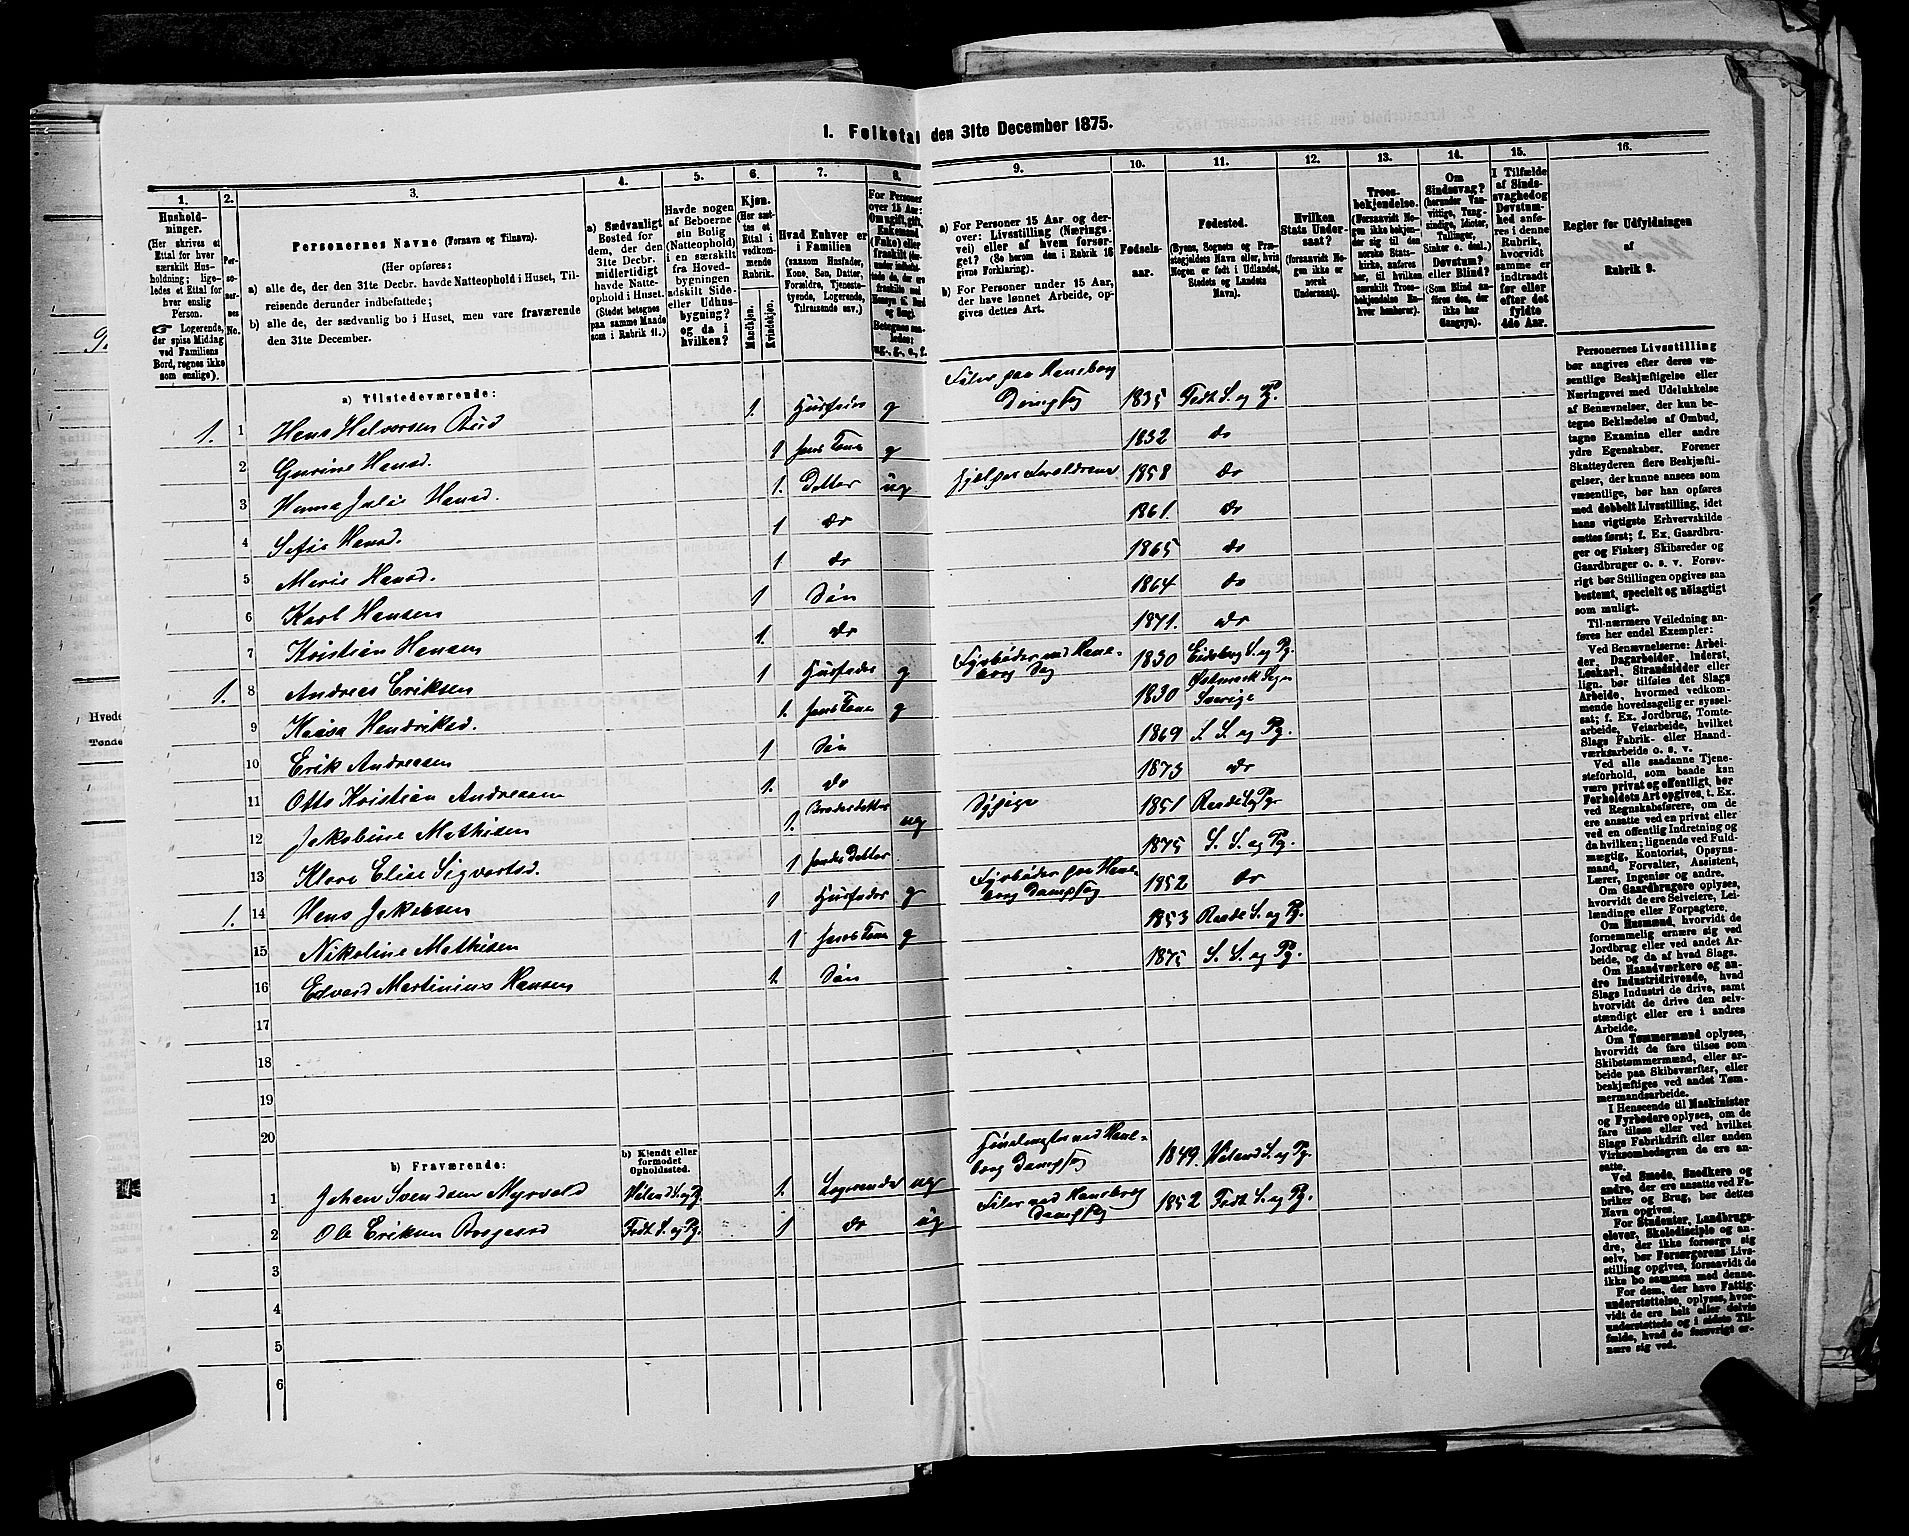 1. Folketal den 31te December 1875.
1. 2. 3. 4. 5. 6. 7. 8. 9. 10. 11. 12. 13. 14. 15. 16.
Husholdninger. (Her skrives et Ettal for hver særskilt Husholdning; ligeledes et Ettal for hver enslig Person. ☞ Logerende, der spise Middag ved Familiens Bord, regnes ikke som enslige).
Personernes No.
Personernes Navne (Fornavn og Tilnavn).
(Her opføres:
a) alle de, der den 31te Decbr. havde Natteophold i Huset, Tilreisende derunder indbefattede;
b) alle de, der sædvanlig bo i Huset, men vare fraværende den 31te December.
a) Sædvanligt Bosted for dem, der den 31te Decbr. midlertidigt havde Natteophold i Huset. (Stedet betegnes paa samme Maade som i Rubrik 11.)
Havde nogen af Beboerne sin Bolig (Natteophold) i en særskilt fra Hovedbygningen adskilt Side- eller Udhusbygning? og da i hvilken?
Kjøn. (Her sættes et Ettal i vedkommende Rubrik.
Mandkjøn. Kvindekjøn.
Hvad Enhver er i Familien (saasom Husfader, Kone, Søn, Datter, Forældre, Tjenestetyende, Logerende, Tilreisende osv.)
For Personer over 15 Aar: Om ugift, gift, Enkemand (Enke) eller fraskilt
Betegnes saaledes: ug., g., e., f.
a) For Personer 15 Aar og derover: Livsstilling (Næringsvei) eller af hvem forsørget? (Se herom den i Rubrik 16 givne Forklaring).
b) For Personer under 15 Aar, der have lønnet Arbeide, opgives dettes Art.
Fødselsaar.
Fødested. (Byens, Sognets og Præstegjeldets Navn eller, hvis Nogen er født i Udlandet, Stedets og Landets Navn).
Hvilken Stats Undersaat? (forsaavidt Nogen ikke er norsk Undersaat).
Troesbekjendelse. (Forsaavidt Nogen ikke bekjender sig til den norske Statskirke, anføres her, til hvilken særskilt Troesbekjendelse Enhver henhører).
Om Sindssvag? (herunder Vanvittige, Tungsindige, Idioter, Tullinger, Sinker o. desl.) Døvstum? eller Blind? (Som Blind anføres den, der ikke har Gangsyn).
I Tilfælde af Sindssvaghed og Døvstumhed anføres i denne Rubrik, hvorvidt samme er indtraadt før eller efter det fyldte 4de Aar.
Regler for Udfyldningen af Rubrik 9.
a) Tilstedeværende:
1. 1 Hans Halvorsen Rud 1. Husfader g Filer paa Haneborg Dampsag 1835 Fedt S. og Pg.
2 Gurine Hansd. 1 hans Kone g 1832 do
3 Hanna Julie Hansd. 1. Datter ug hjælper Forældrene 1858 do
4 Sofie Hansd. 1 do 1861. do
5 Marie Hansd. 1 do 1865 do
6 Karl Hansen 1 Søn 1864 do
7 Kristian Hansen 1. do 1871. do
1. 8 Andreas Eriksen 1 Husfader g Fyrbøder ved Haneborg Sag 1830 Eidsberg S. og Pg.
9 Kaisa Hendriksd. 1. hans Kone g 1830 Østmark Sogn Sverige
10 Erik Andreasen 1 Søn 1869 S. S. og Pg.
11 Otto Kristian Andreasen 1. do 1873 do
12 Jakobine Mathisen 1. Broderdatter ug Sypige 1851 Raade S. og Pg.
13 Klara Elise Sigvartsd. 1 hendes Datter 1875 S. S. og Pg.
1. 14 Hans Jakobsen 1 Husfader g Fyrbøder paa Haneborg Dampsag 1852 do
15 Nikoline Mathisen 1 hans Kone g 1853 Raade S. og Pg.
16 Edvard Martinius Hansen 1. Søn 1875 S. S. og Pg.
17
18
19
20
b) Fraværende:
b) Kjendt eller formodet Opholdssted.
1 Johan Svendsen Myrvold 1. Logerende ug Haneborg Dampsag 1849.
2 Ole Eriksen Fedt S. og Pg. 1 do ug Filer ved Haneborg Dampsag 1852 Fedt S. og Pg.
3
4
5
6
Personernes Livsstilling bør angives efter deres væsentlige Beskjæftigelse eller Næringsvei med Udelukkelse af Benævnelser, der kun betegne Beklædelse af Ombud, tagne Examina eller andre ydre Egenskaber. Forener Skatteyderen flere Beskjæftigelser, der kunne ansees som væsentlige, bør han opføres med dobbelt Livsstilling, idet hans vigtigste Erhvervskilde sættes først; f. Ex. Gaardbruger og Fisker; Skibsreder og Gaardbruger o. s. v. Forøvrigt bør Stillingen opgives saa bestemt, specielt og nøiagtigt som muligt.
Til nærmere Veiledning anføres her endel Exempler:
Ved Benævnelserne: Arbeider, Dagarbeider, Inderst, Løskarl, Strandsidder eller lign. bør tilføies det Slags Arbeide, hvormed vedkommende hovedsagelig er sysselsat; f. Ex. Jordbrug, Tomtearbeide, Veiarbeide, hvilket Slags Fabrik- eller Haandværksarbeide o. s. v.
Ved alle saadanne Tjenesteforhold, som baade kan være privat og offentligt, bør Forholdets Art opgives, t. Ex. ved Regnskabsførere, om de ere ansatte ved en privat eller ved en offentlig Indretning og da hvilken; lignende ved Fuldmægtig, Kontorist, Opsynsmand, Forvalter, Assistent, Lærer, Ingeniør og andre.
Om Gaardbrugere oplyses, hvorvidt de ere Selveiere, Leilændinge eller Forpagtere.
Om Husmænd, hvorvidt de fornemmelig ernære sig ved Jordbrug eller ved andet Arbeide, og da af hvad Slags.
Om Haandværkere og andre Industridrivende, hvad Slags Industri de drive, samt hvorvidt de drive den selvstændigt eller ere i andres Arbeide.
Om Tømmermænd oplyses, hvorvidt de fare tilsøs som Skibstømmermænd, eller arbeide paa Skibsværfter, eller beskjæftiges ved andet Tømmermandsarbeide.
I Henseende til Maskinister og Fyrbødere oplyses, om de fare tilsøs eller ved hvilket Slags Fabrikdrift eller anden Virksomhedsgren de ere ansatte.
Ved Smede, Snedkere og andre, der ere ansatte ved Fabriker og Brug, bør dettes Navn opgives.
For Studenter, Landbrugselever, Skoledisciple og andre, der ikke forsørge sig selv, bør Forsørgerens Livsstilling opgives, forsaavidt de ikke bo sammen med denne.
For dem, der have Fattigunderstøttelse, oplyses, hvorvidt de ere helt eller delvis understøttede og i sidste Tilfælde, hvad de forøvrigt ernære sig ved.